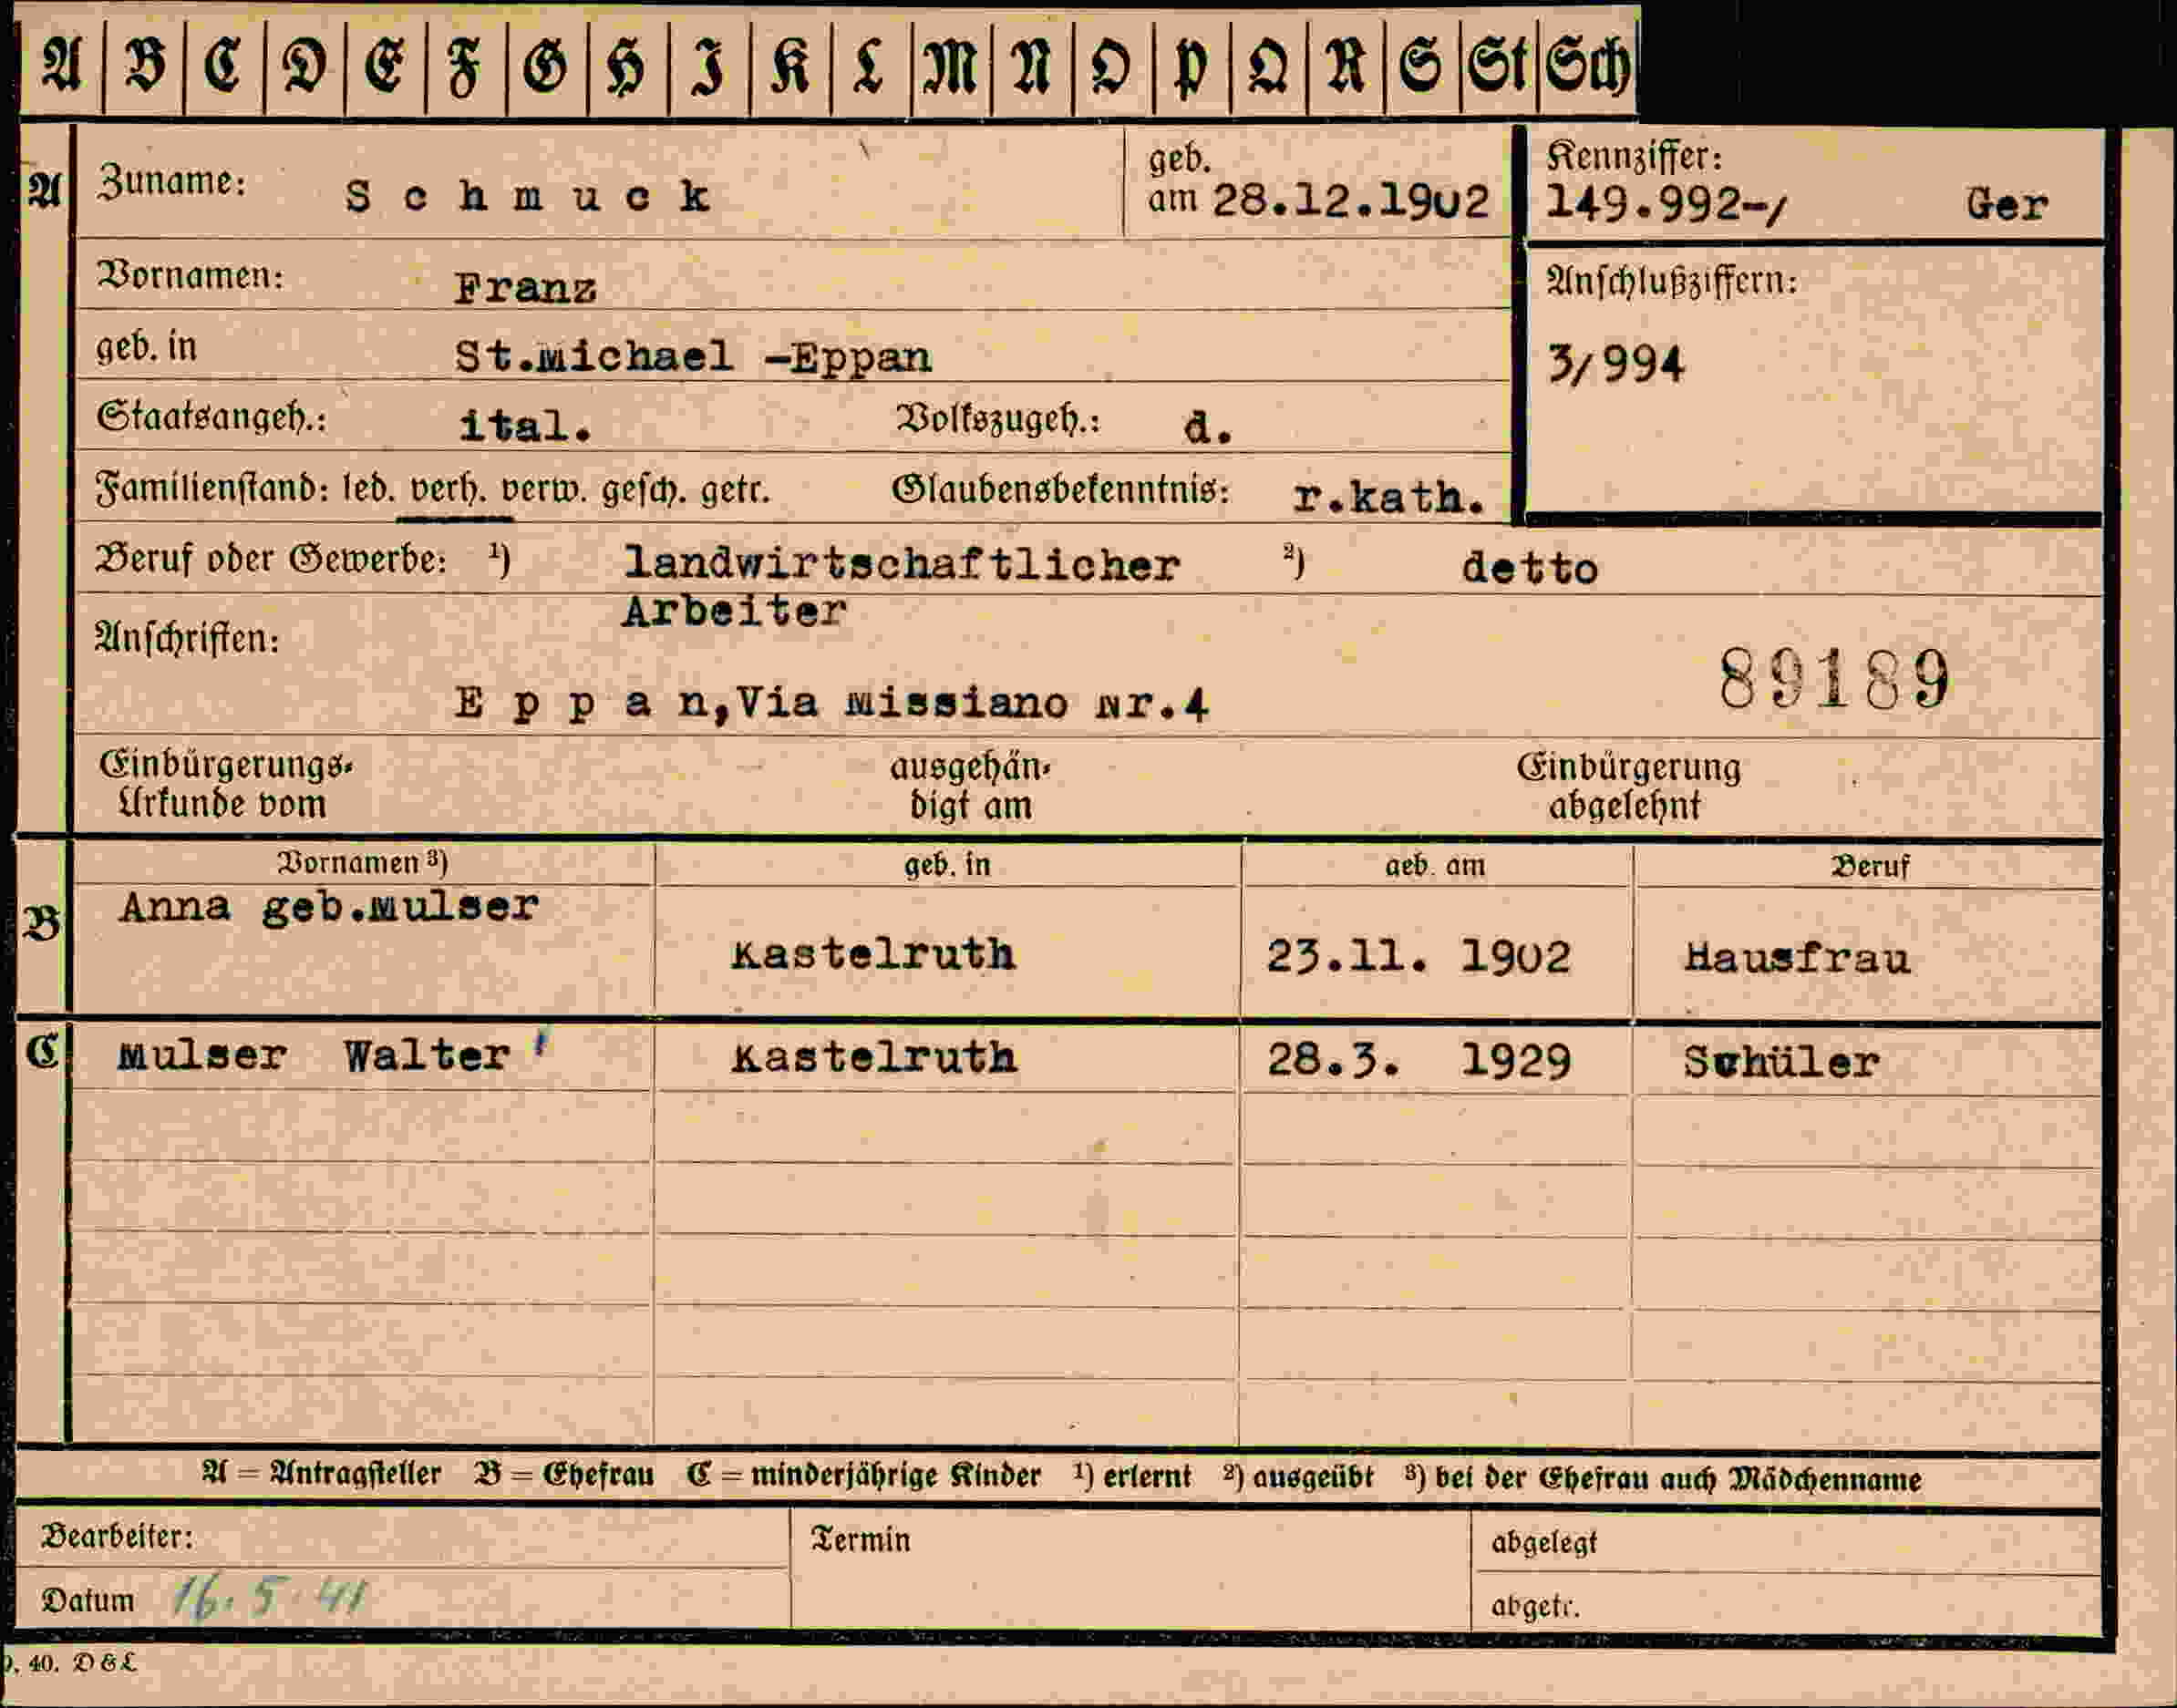 A B C D E F G H I K L M N O P Q R S St Sch
A Zuname: Schmuck geb. am 28.12.1902 Kennziffer: 149.992-/ Ger
Vornamen: Franz Anschlußziffern:
geb. in St.Michael -Eppan 3/994
Staatsangeh.: ital. Volkszugeh.: d.
Familienstand: led. verh. verw. gesch. getr. Glaubensbekenntnis: r.kath.
Beruf oder Gewerbe: ¹) landwirtschaftlicher ²) detto
Arbeiter
Anschriften:
89189
Eppan,Via Missiano Nr.4
Einbürgerungs- ausgehän- Einbürgerung
Urkunde vom digt am abgelehnt
Vornamen ³) geb. in geb. am Beruf
B Anna geb.Mulser
Kastelruth 23.11. 1902 Hausfrau
C Mulser Walter Kastelruth 28.3. 1929 Schüler
A = Antragsteller B = Ehefrau C = minderjährige Kinder ¹) erlernt ²) ausgeübt ³) bei der Ehefrau auch Mädchenname
Bearbeiter: Termin abgelegt
Datum 16.5.41 abgetr.
40. D&L